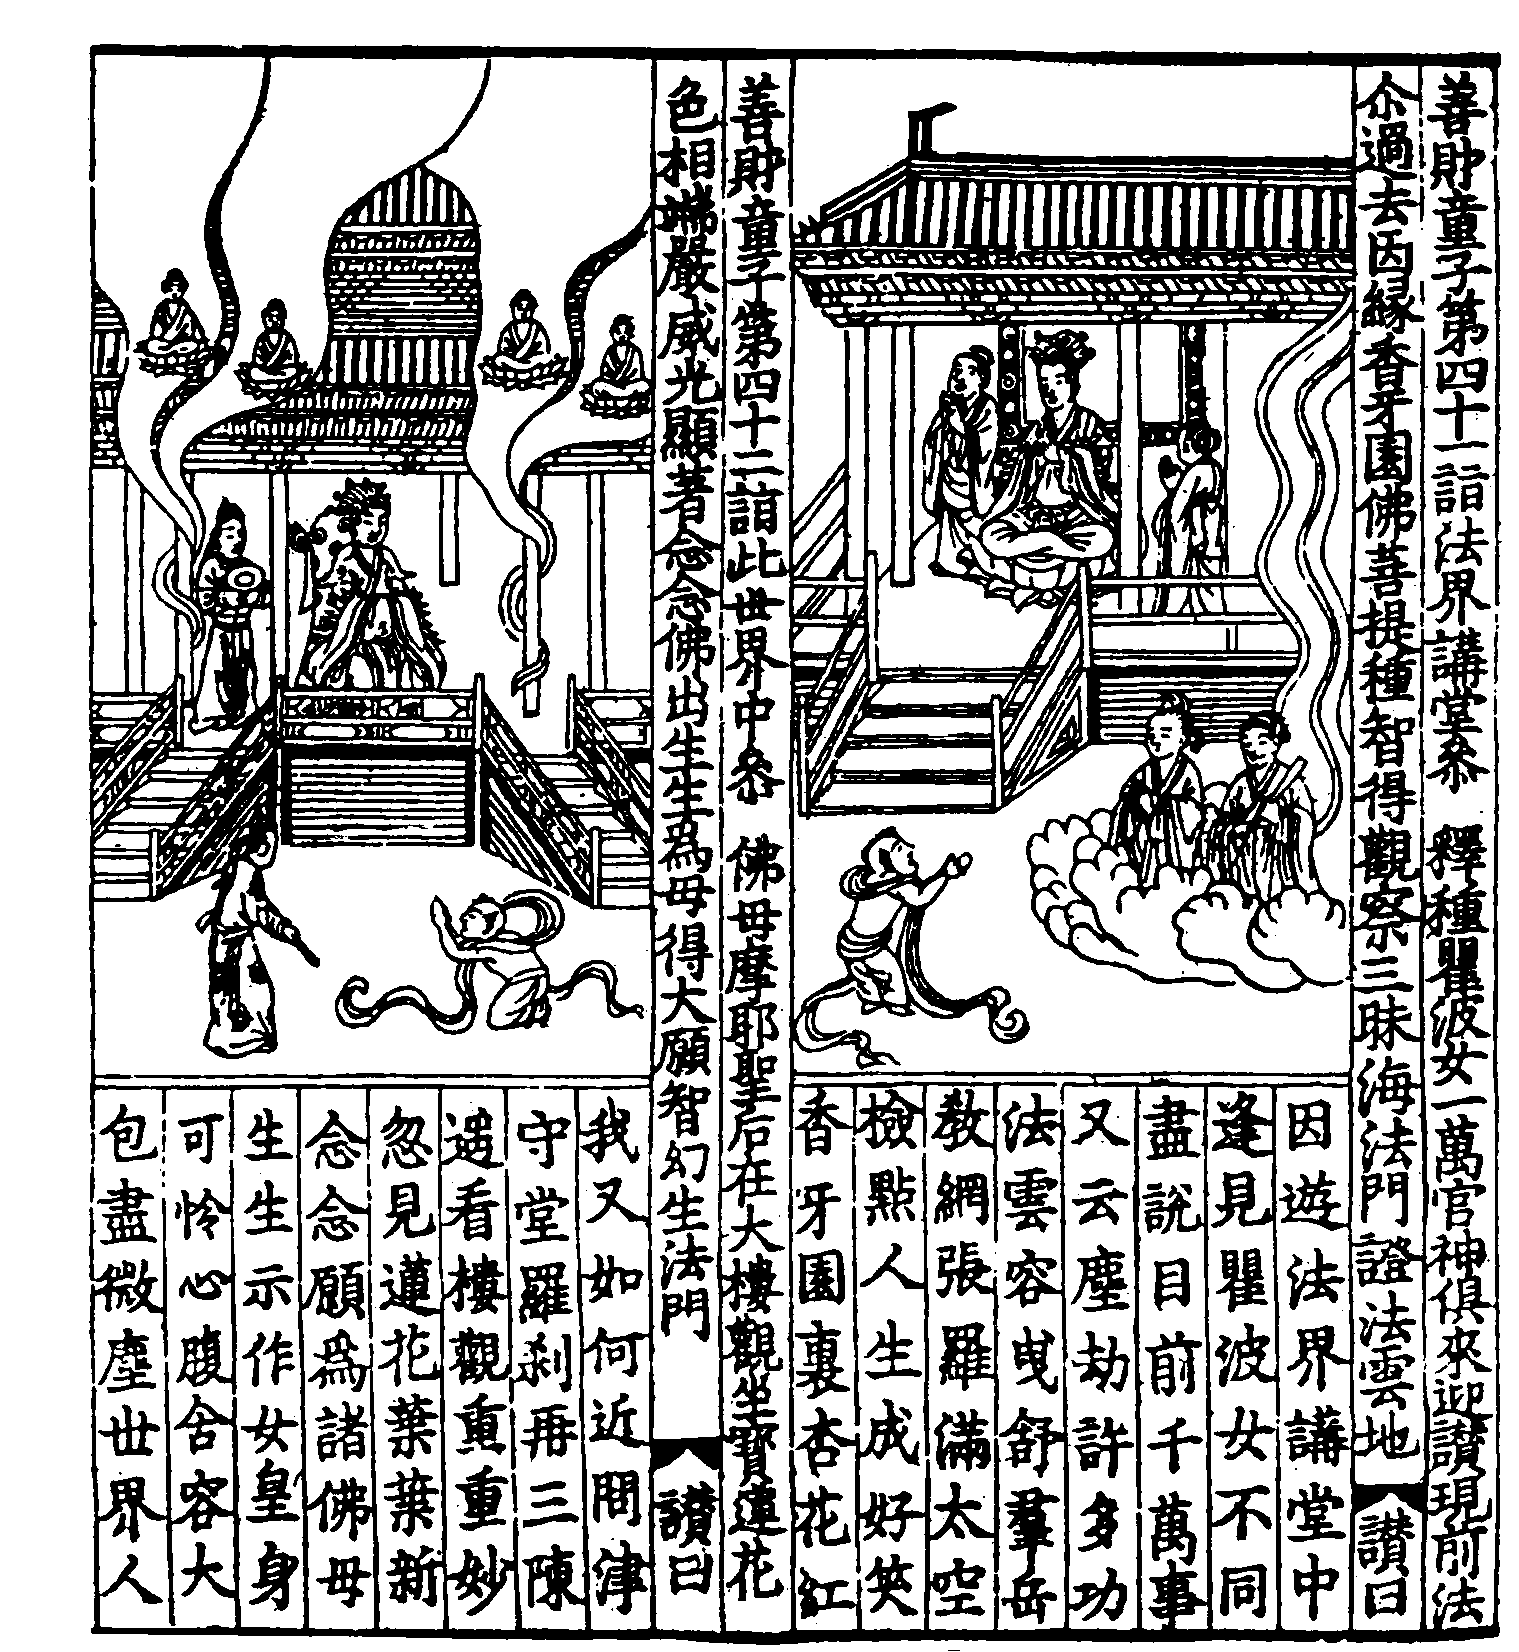 善財童子第四十一詣法界講堂叅　釋種瞿波女一萬官神俱來迎讃現前法
尒過去因緣香牙園佛菩提種智得觀察三昧海法門證法雲地　讃曰
因遊法界講堂中
逢見瞿波女不同
盡說目前千萬事
又云塵劫許多功
法雲容曳舒羣岳
教網張羅滿太空
檢點人生成好笑
香牙園裏杏花紅
善財童子第四十二詣此世界中叅　佛母摩耶聖后在大樓觀坐寶蓮花
色相端嚴威光顯著念念佛出生生為母得大願智幻生法門　讃曰
我又如何近問津
守堂羅刹再三陳
遥看樓觀重重妙
忽見蓮花葉葉新
念念願為諸佛母
生生示作女皇身
可怜心腹舍容大
包盡微塵世界人